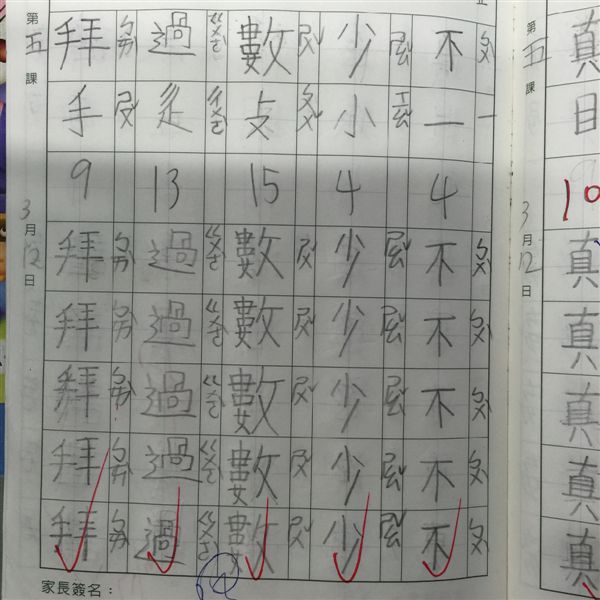 真日10真真真真真
第五課 3月12日
不一4不不不不不
ㄅㄨˋ ㄧ ㄅㄨˋ ㄅㄨˋ ㄅㄨˋ ㄅㄨˋ ㄅㄨˋ
少小4少少少少少
ㄕㄠˇ ㄒㄧㄠˇ ㄕㄠˇ ㄕㄠˇ ㄕㄠˇ ㄕㄠˇ ㄕㄠˇ
數攴15數數數數數
ㄕㄨˇ ㄆㄨ ㄕㄨˇ ㄕㄨˇ ㄕㄨˇ ㄕㄨˇ ㄕㄨˇ
過辵13過過過過過
ㄍㄨㄛˋ ㄔㄨㄛˋ ㄍㄨㄛˋ ㄍㄨㄛˋ ㄍㄨㄛˋ ㄍㄨㄛˋ ㄍㄨㄛˋ
拜手9拜拜拜拜拜
ㄅㄞˋ ㄕㄡˇ ㄅㄞˋ ㄅㄞˋ ㄅㄞˋ ㄅㄞˋ ㄅㄞˋ
第五課 3月12日
家長簽名：